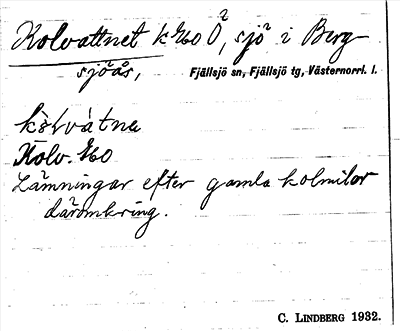 Kolvattnet k 460 Ö, sjö i Berg-
sjöås,
Fjällsjö sn, Fjällsjö tg, Västernorrl. l.
Kolv. 460
Lämningar efter gamla kolmilor
däromkring.
C. LINDBERG 1932.